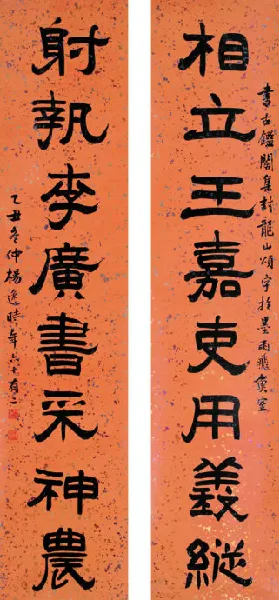 書古鑑閣集封龍山頌字於墨雨飛室
相立王嘉吏用義縱
射執李廣書采神農
乙丑冬仲楊逸時年六十有二